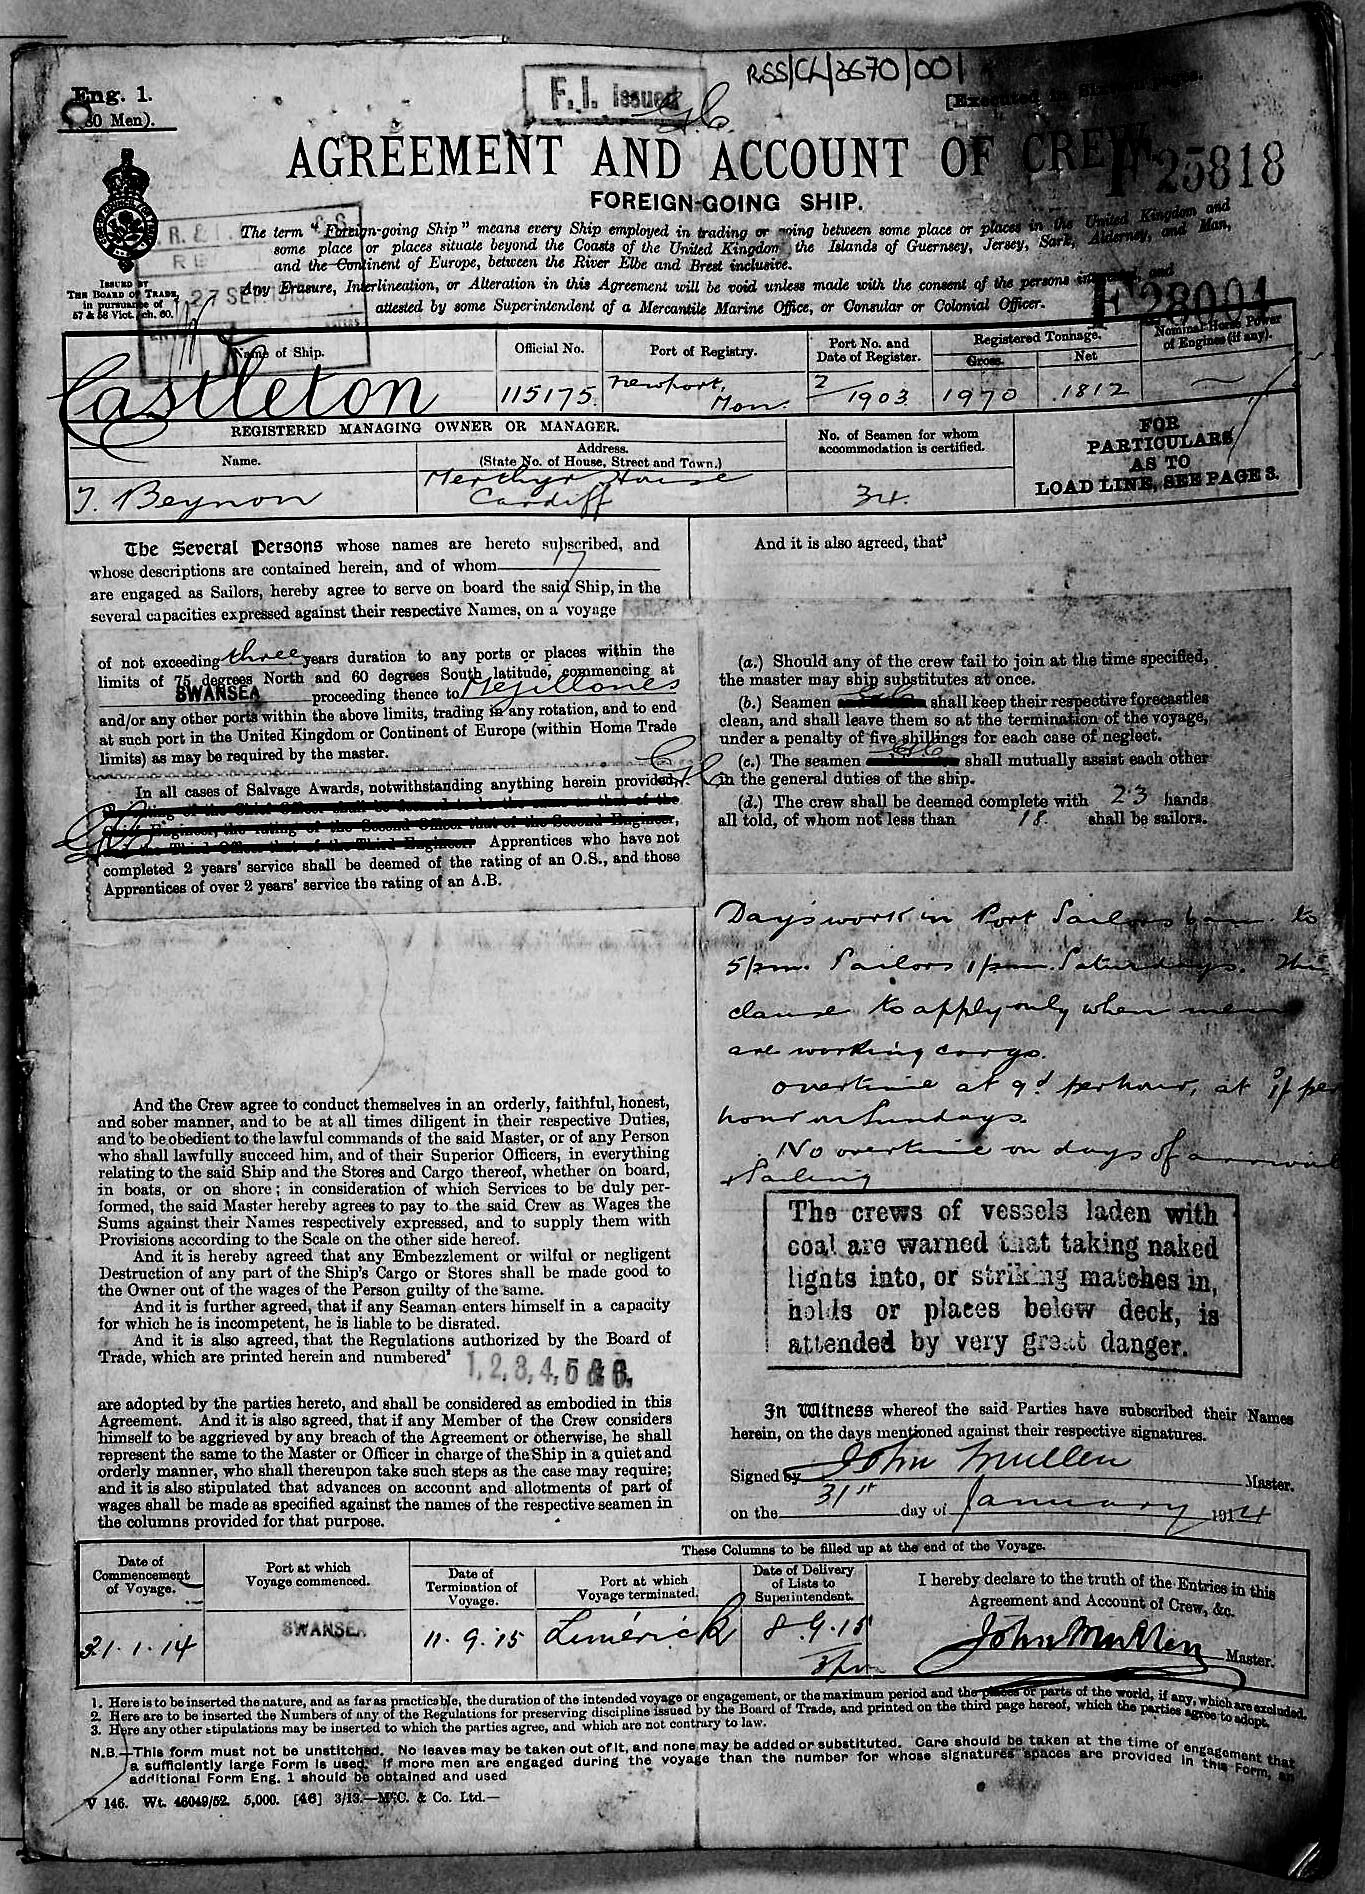 RSS/CL/3670/001
Eng. 1.
F.I. issued
[Executed
(30 Men).
AGREEMENT AND ACCOUNT OF CREW
F 25818
FOREIGN-GOING SHIP.
The term "Foreign-going Ship" means every Ship employed in trading or going between some place or places in the United Kingdom and
some place or places situate beyond the Coasts of the United Kingdom the Islands of Guernsey, Jersey, Sark, Alderney, and Man,
and the Continent of Europe, between the River Elbe and Brest inclusive.
27 SEP
ISSUED BY
THE BOARD OF TRADE,
in pursuance of
57 & 58 Vict., ch. 60.
Any Erasure, Interlineation, or Alteration in this Agreement will be void unless made with the consent of the persons interested, and
attested by some Superintendent of a Mercantile Marine Office, or Consular or Colonial Officer.
F 28001
Name of Ship.
Official No.
Port of Registry.
Port No. and
Date of Register.
Registered Tonnage.
Gross.
Net
Nominal Horse Power
of Engines (if any).
Castleton
115175
Newport,
Mon.
2/1903
1970
1812
REGISTERED MANAGING OWNER OR MANAGER.
Name.
Address.
(State No. of House, Street and Town.)
No. of Seamen for whom
accommodation is certified.
FOR
PARTICULARS
AS TO
LOAD LINE, SEE PAGE 3.
T. Beynon
Merthyr House
Cardiff
34.
The Several Persons whose names are hereto subscribed, and
whose descriptions are contained herein, and of whom 17
are engaged as Sailors, hereby agree to serve on board the said Ship, in the
several capacities expressed against their respective Names, on a voyage
of not exceeding three years duration to any ports or places within the
limits of 75 degrees North and 60 degrees South latitude, commencing at
SWANSEA proceeding thence to Mejillones
and/or any other ports within the above limits, trading in any rotation, and to end
at such port in the United Kingdom or Continent of Europe (within Home Trade
limits) as may be required by the master.
In all cases of Salvage Awards, notwithstanding anything herein provided,
the rating of the Chief Officer shall be deemed to be the same as that of the
Chief Engineer, the rating of the Second Officer that of the Second Engineer,
and the Third Officer that of the Third Engineer. Apprentices who have not
completed 2 years' service shall be deemed of the rating of an O.S., and those
Apprentices of over 2 years' service the rating of an A.B.
And the Crew agree to conduct themselves in an orderly, faithful, honest,
and sober manner, and to be at all times diligent in their respective Duties,
and to be obedient to the lawful commands of the said Master, or of any Person
who shall lawfully succeed him, and of their Superior Officers, in everything
relating to the said Ship and the Stores and Cargo thereof, whether on board,
in boats, or on shore; in consideration of which Services to be duly per-
formed, the said Master hereby agrees to pay to the said Crew as Wages the
Sums against their Names respectively expressed, and to supply them with
Provisions according to the Scale on the other side hereof.
And it is hereby agreed that any Embezzlement or wilful or negligent
Destruction of any part of the Ship's Cargo or Stores shall be made good to
the Owner out of the wages of the Person guilty of the same.
And it is further agreed, that if any Seaman enters himself in a capacity
for which he is incompetent, he is liable to be disrated.
And it is also agreed, that the Regulations authorized by the Board of
Trade, which are printed herein and numbered²
1, 2, 3, 4, 5 & 6,
are adopted by the parties hereto, and shall be considered as embodied in this
Agreement. And it is also agreed, that if any Member of the Crew considers
himself to be aggrieved by any breach of the Agreement or otherwise, he shall
represent the same to the Master or Officer in charge of the Ship in a quiet and
orderly manner, who shall thereupon take such steps as the case may require;
and it is also stipulated that advances on account and allotments of part of
wages shall be made as specified against the names of the respective seamen in
the columns provided for that purpose.
And it is also agreed, that³
(a.) Should any of the crew fail to join at the time specified,
the master may ship substitutes at once.
(b.) Seamen shall keep their respective forecastles
clean, and shall leave them so at the termination of the voyage,
under a penalty of five shillings for each case of neglect.
(c.) The seamen shall mutually assist each other
in the general duties of the ship.
(d.) The crew shall be deemed complete with 23 hands
all told, of whom not less than 18. shall be sailors.
Day's work in Port Sailors 6 am. to
5 pm. Sailors 1 pm. Saturdays. This
clause to apply only when men
are working cargo.
overtime at 9d per hour, at 1/ per
hour on Sundays.
No overtime on days of arrival
& sailing
The crews of vessels laden with
coal are warned that taking naked
lights into, or striking matches in,
holds or places below deck, is
attended by very great danger.
In Witness whereof the said Parties have subscribed their Names
herein, on the days mentioned against their respective signatures.
Signed by John Mullen Master.
on the 31st day of January 1914
These Columns to be filled up at the end of the Voyage.
Date of
Commencement
of Voyage.
Port at which
Voyage commenced.
Date of
Termination of
Voyage.
Port at which
Voyage terminated.
Date of Delivery
of Lists to
Superintendent.
I hereby declare to the truth of the Entries in this
Agreement and Account of Crew, &c.
31.1.14
SWANSEA
11.9.15
Limerick
8.9.15
John Mullen Master.
1. Here is to be inserted the nature, and as far as practicable, the duration of the intended voyage or engagement, or the maximum period and the places or parts of the world, if any, which are excluded.
2. Here are to be inserted the Numbers of any of the Regulations for preserving discipline issued by the Board of Trade, and printed on the third page hereof, which the parties agree to adopt.
3. Here any other stipulations may be inserted to which the parties agree, and which are not contrary to law.
N.B.—This form must not be unstitched. No leaves may be taken out of it, and none may be added or substituted. Care should be taken at the time of engagement that
a sufficiently large Form is used. If more men are engaged during the voyage than the number for whose signatures spaces are provided in this Form, an
additional Form Eng. 1 should be obtained and used
V 146. Wt. 46049/52. 5,000. [46] 3/13.—McC. & Co. Ltd.—